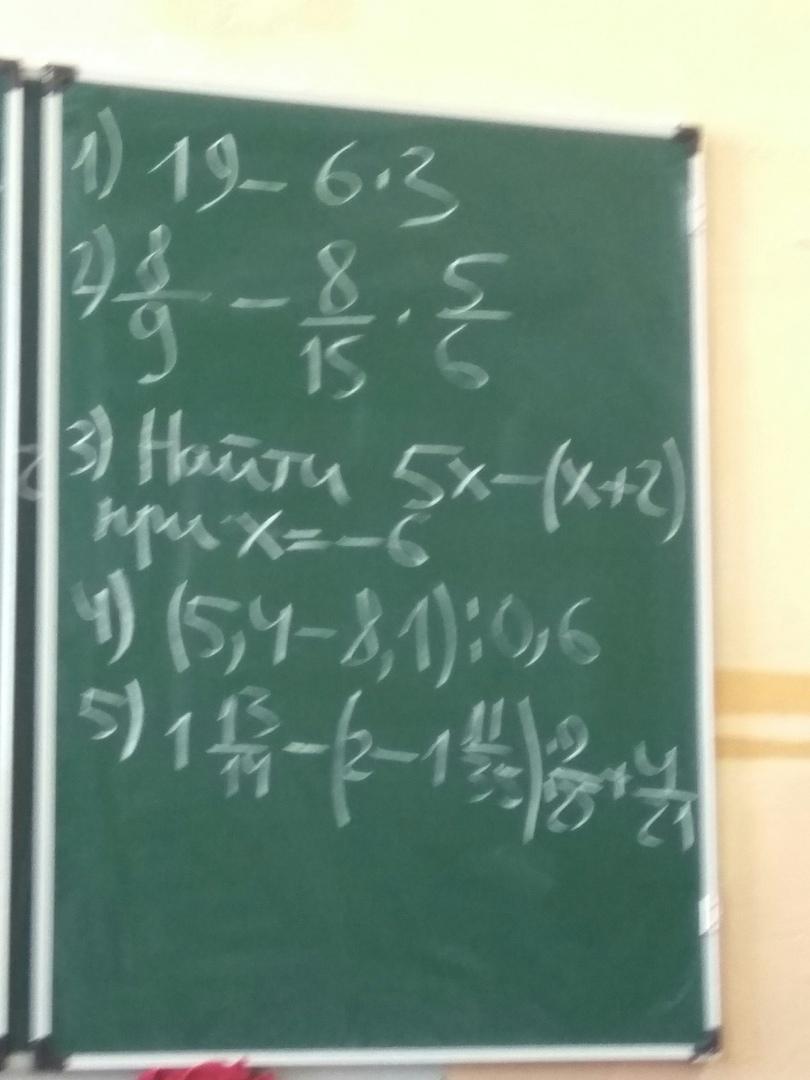 1) 19 - 6·3
2) 8/9 - 8/15 · 5/6
3) Найти 5x-(x+2)
при x=-6
4) (5,4-8,1):0,6
5) 1 13/14 - (2-1 11/35)
+ 4/21